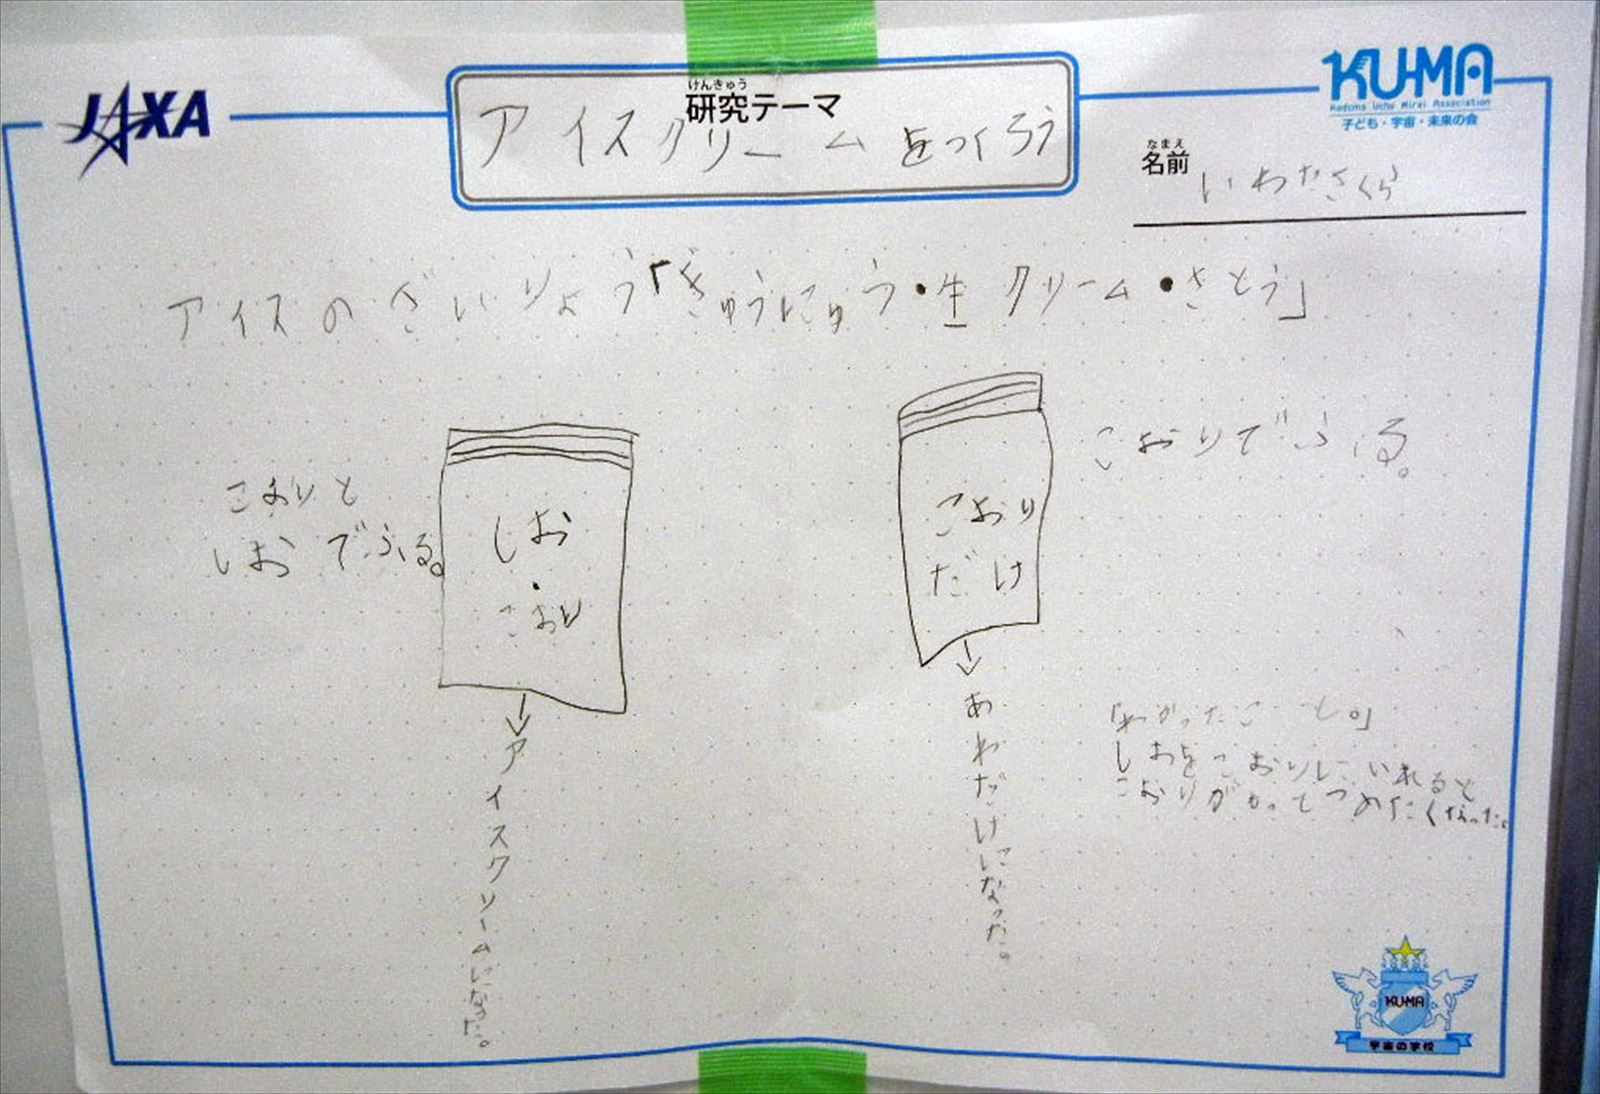 JAXA
けんきゅう
研究テーマ
アイスクリームをつくろう
KU-MA
Kodomo Uchu Mirai Association
子ども・宇宙・未来の会
なまえ
名前
いわたさくら
アイスのざいりょう「ぎゅうにゅう・生クリーム・さとう」
こおりと
しおでふる。
しお
・
こおり
アイスクリームになった。
こおりでふる。
こおり
だけ
あわだけになった。
「わかったこと。」
しおをこおりにいれると
こおりがかってつめたくなった。
KU-MA
宇宙の学校